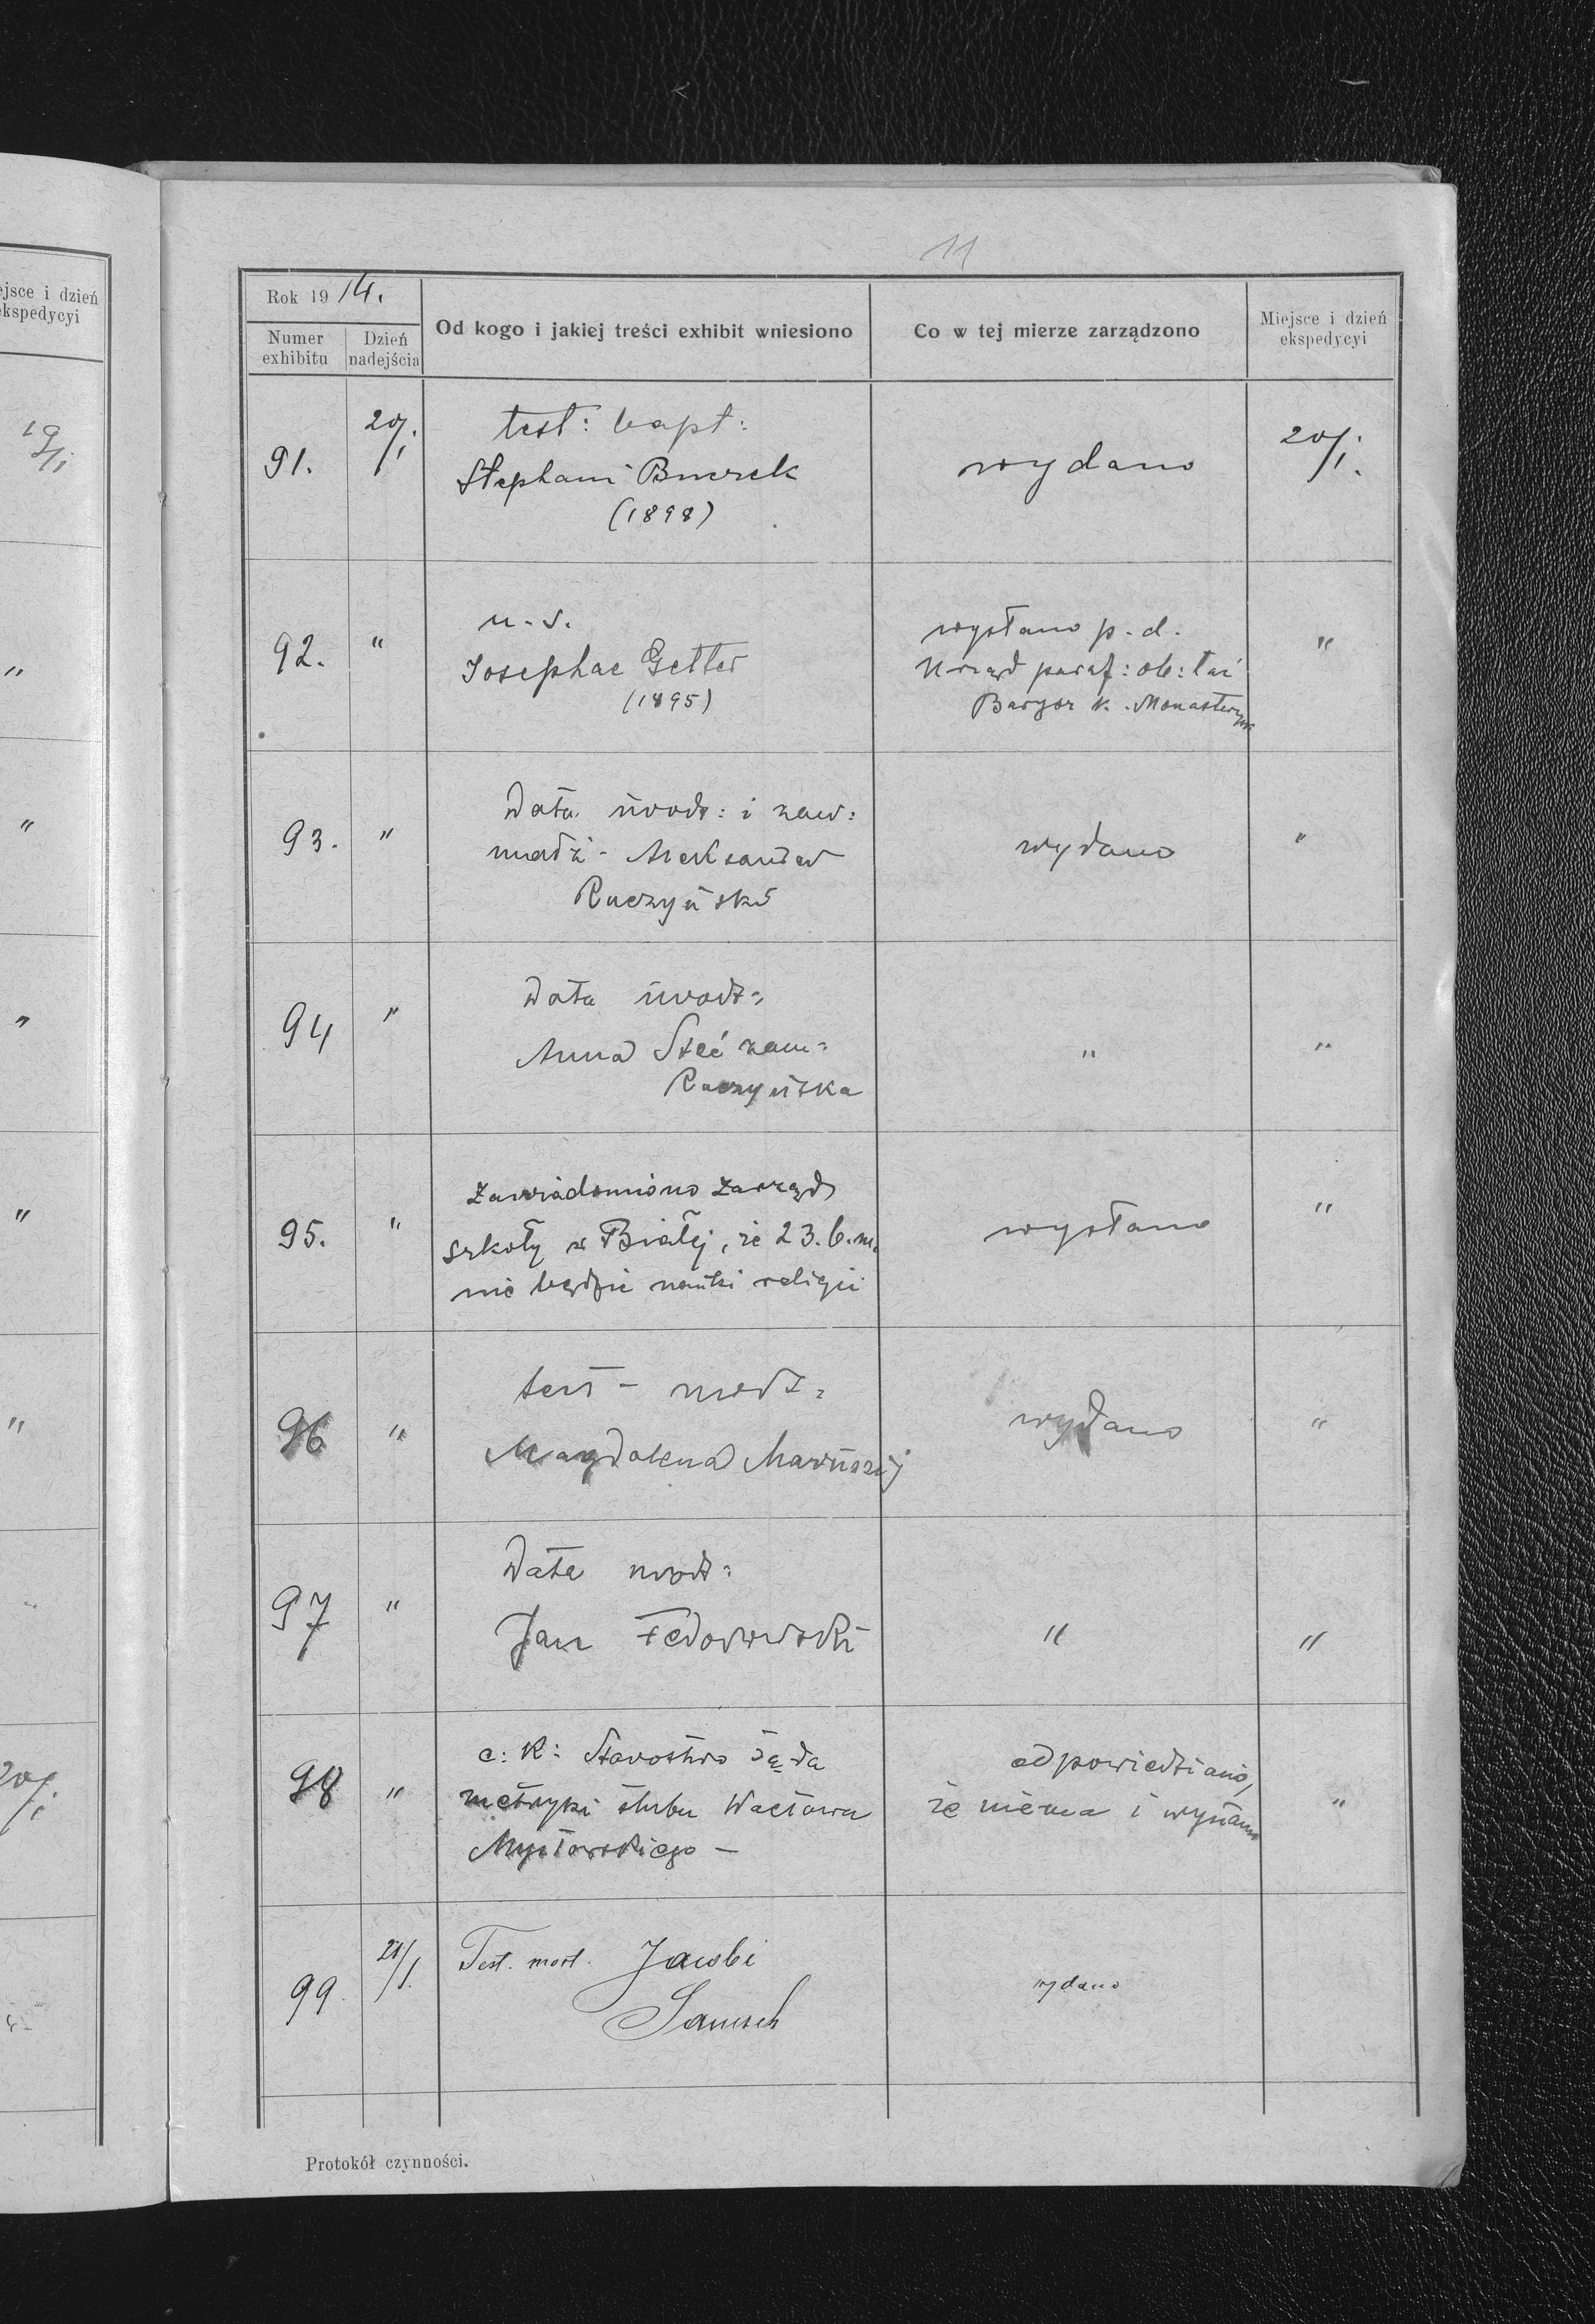 11
Rok 19 14.
Numer exhibitu
Dzień nadejścia
Od kogo i jakiej treści exhibit wniesiono
Co w tej mierze zarządzono
Miejsce i dzień ekspedycyi
ejsce i dzień
ekspedycyi
19/I
"
"
"
"
"
20/I
91.
20/I.
test: bapt:
Stephani
(1898)
wydano
20/I.
92.
"
u. s.
Josephae Getter
(1895)
wysłano p. d.
Urząd paraf: ob: łać
Barysz k. Monasterzysk
"
93.
"
Data urodz: i zaw:
Aleksander
Raczyński
wydano
"
94
"
Data urodz:
Anna Steć zam:
Raczyńska
"
"
95.
"
Zawiadomiono Zarząd
szkoły w Białej, że 23. b. m.
nie będzie nauki religii
wysłano
"
96
"
test - urodz:
Magdalena
wydano
"
97
"
Data urodz:
Jan Fedorowski
"
"
98
"
c: k: Starostwo żąda
metryki ślubu Wacława
Mysłowskiego -
odpowiedziano,
że niema i wysłano
"
99.
21/I.
Test. mort. Jacobi
wydano
Protokół czynności.